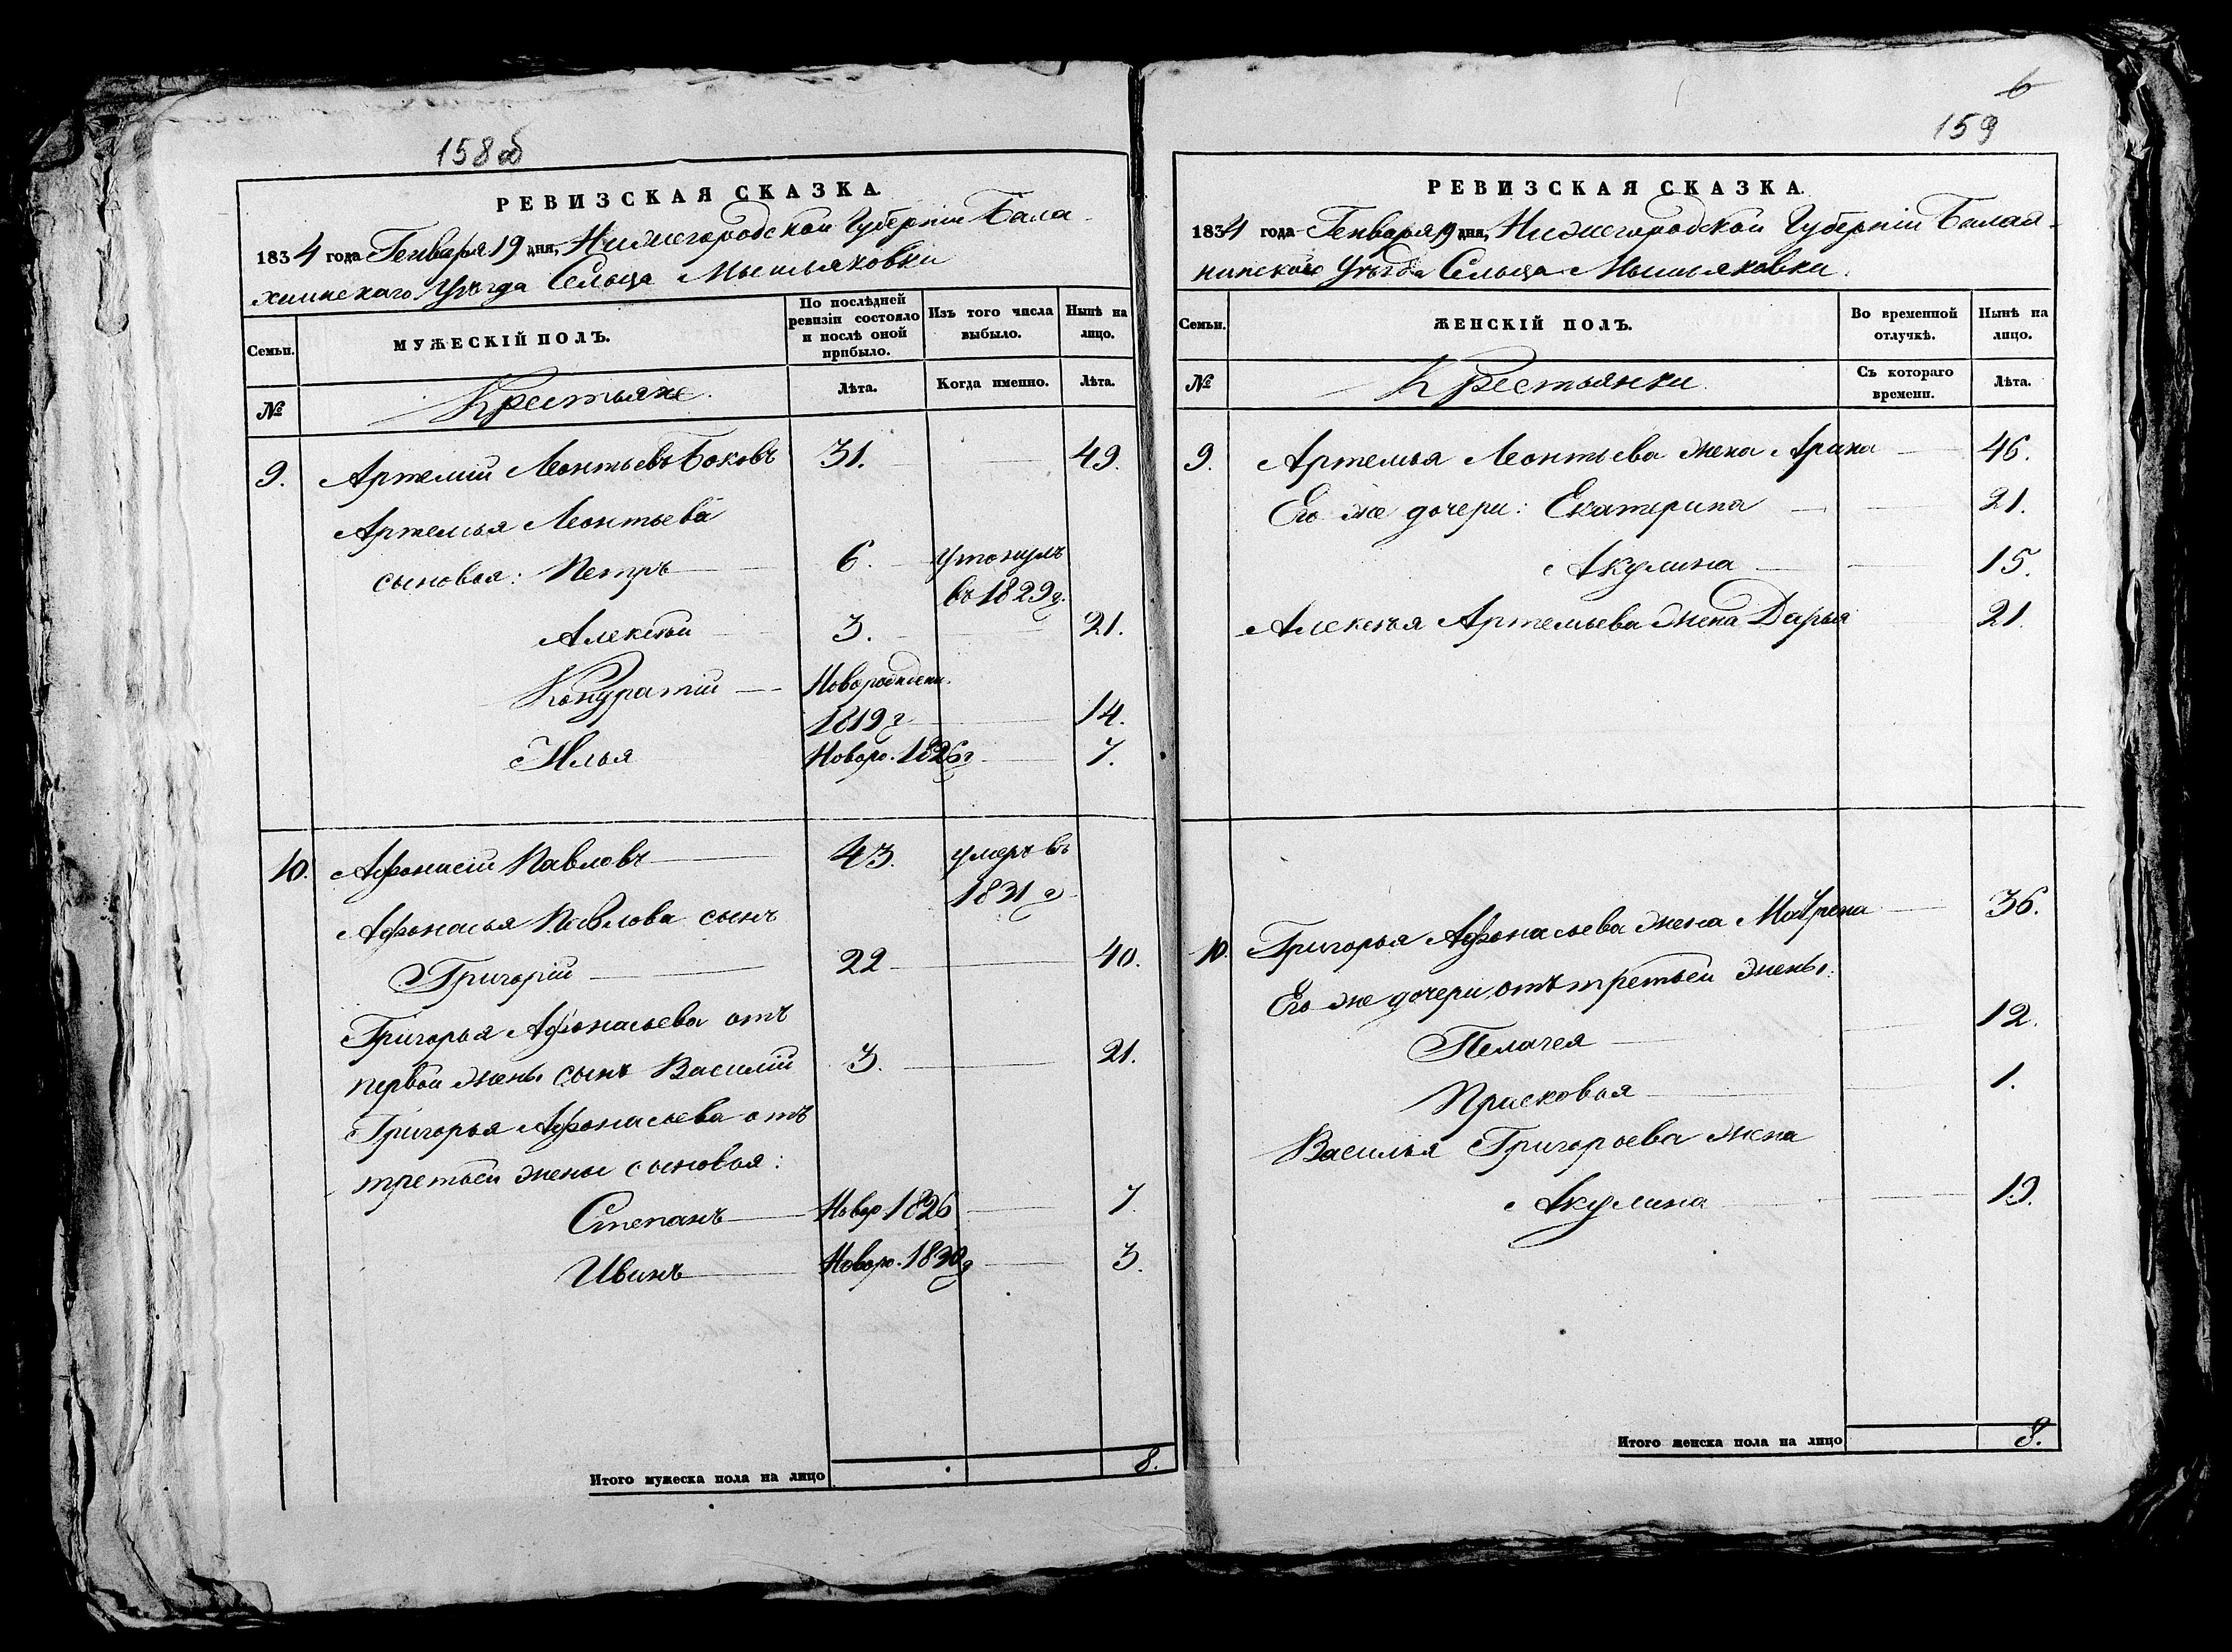 158об
РЕВИЗСКАЯ СКАЗКА.
1834 года Генваря 19 дня, Нижегородской Губерніи Бала-
хнинскаго Уѣзда Сельца Мысьяковки
Семьи. МУЖЕСКІЙ ПОЛЪ. По послѣдней ревизіи состояло и послѣ оной прибыло. Изъ того числа выбыло. Нынѣ на лицо.
№ Крестьяне. Лѣта. Когда именно. Лѣта.
9. Артемій Леонтьевъ Боковъ 31. 49.
Артемья Леонтьева
сыновья: Петръ 6. утонулъ
въ 1829 г.
Алексѣй 3. 21.
Кондратій Новорожден.
1819 г 14.
Илья Новоро. 1826 г 7.
10. Афонасій Павловъ 43. умеръ въ
1831 г
Афонасья Павлова сынъ
Григорій 22 40.
Григорья Афонасьева отъ
первой жены сынъ Василій 3. 21.
Григорья Афонасьева отъ
третьей жены сыновья:
Степанъ Новор 1826 7.
Иванъ Новоро. 1830 г 3.
Итого мужеска пола на лицо 8.
6
159
РЕВИЗСКАЯ СКАЗКА.
1834 года Генваря 19 дня, Нижегородской Губерніи Балах-
нинскаго Уѣзда Сельца Мысьяковки.
Семьи. ЖЕНСКІЙ ПОЛЪ. Во временной отлучкѣ. Нынѣ на лицо.
№ Крестьянки Съ котораго времени. Лѣта.
9. Артемья Леонтьева жена Арина 46.
Его же дочери: Екатерина 21.
Акулина 15.
Алексѣя Артемьева жена Дарья 21.
10. Григорья Афонасьева жена Матрена 36.
Его же дочери отъ третьей жены:
Пелагея 12.
Прасковья 1.
Василья Григорьева жена
Акулина 19.
Итого женска пола на лицо 8.